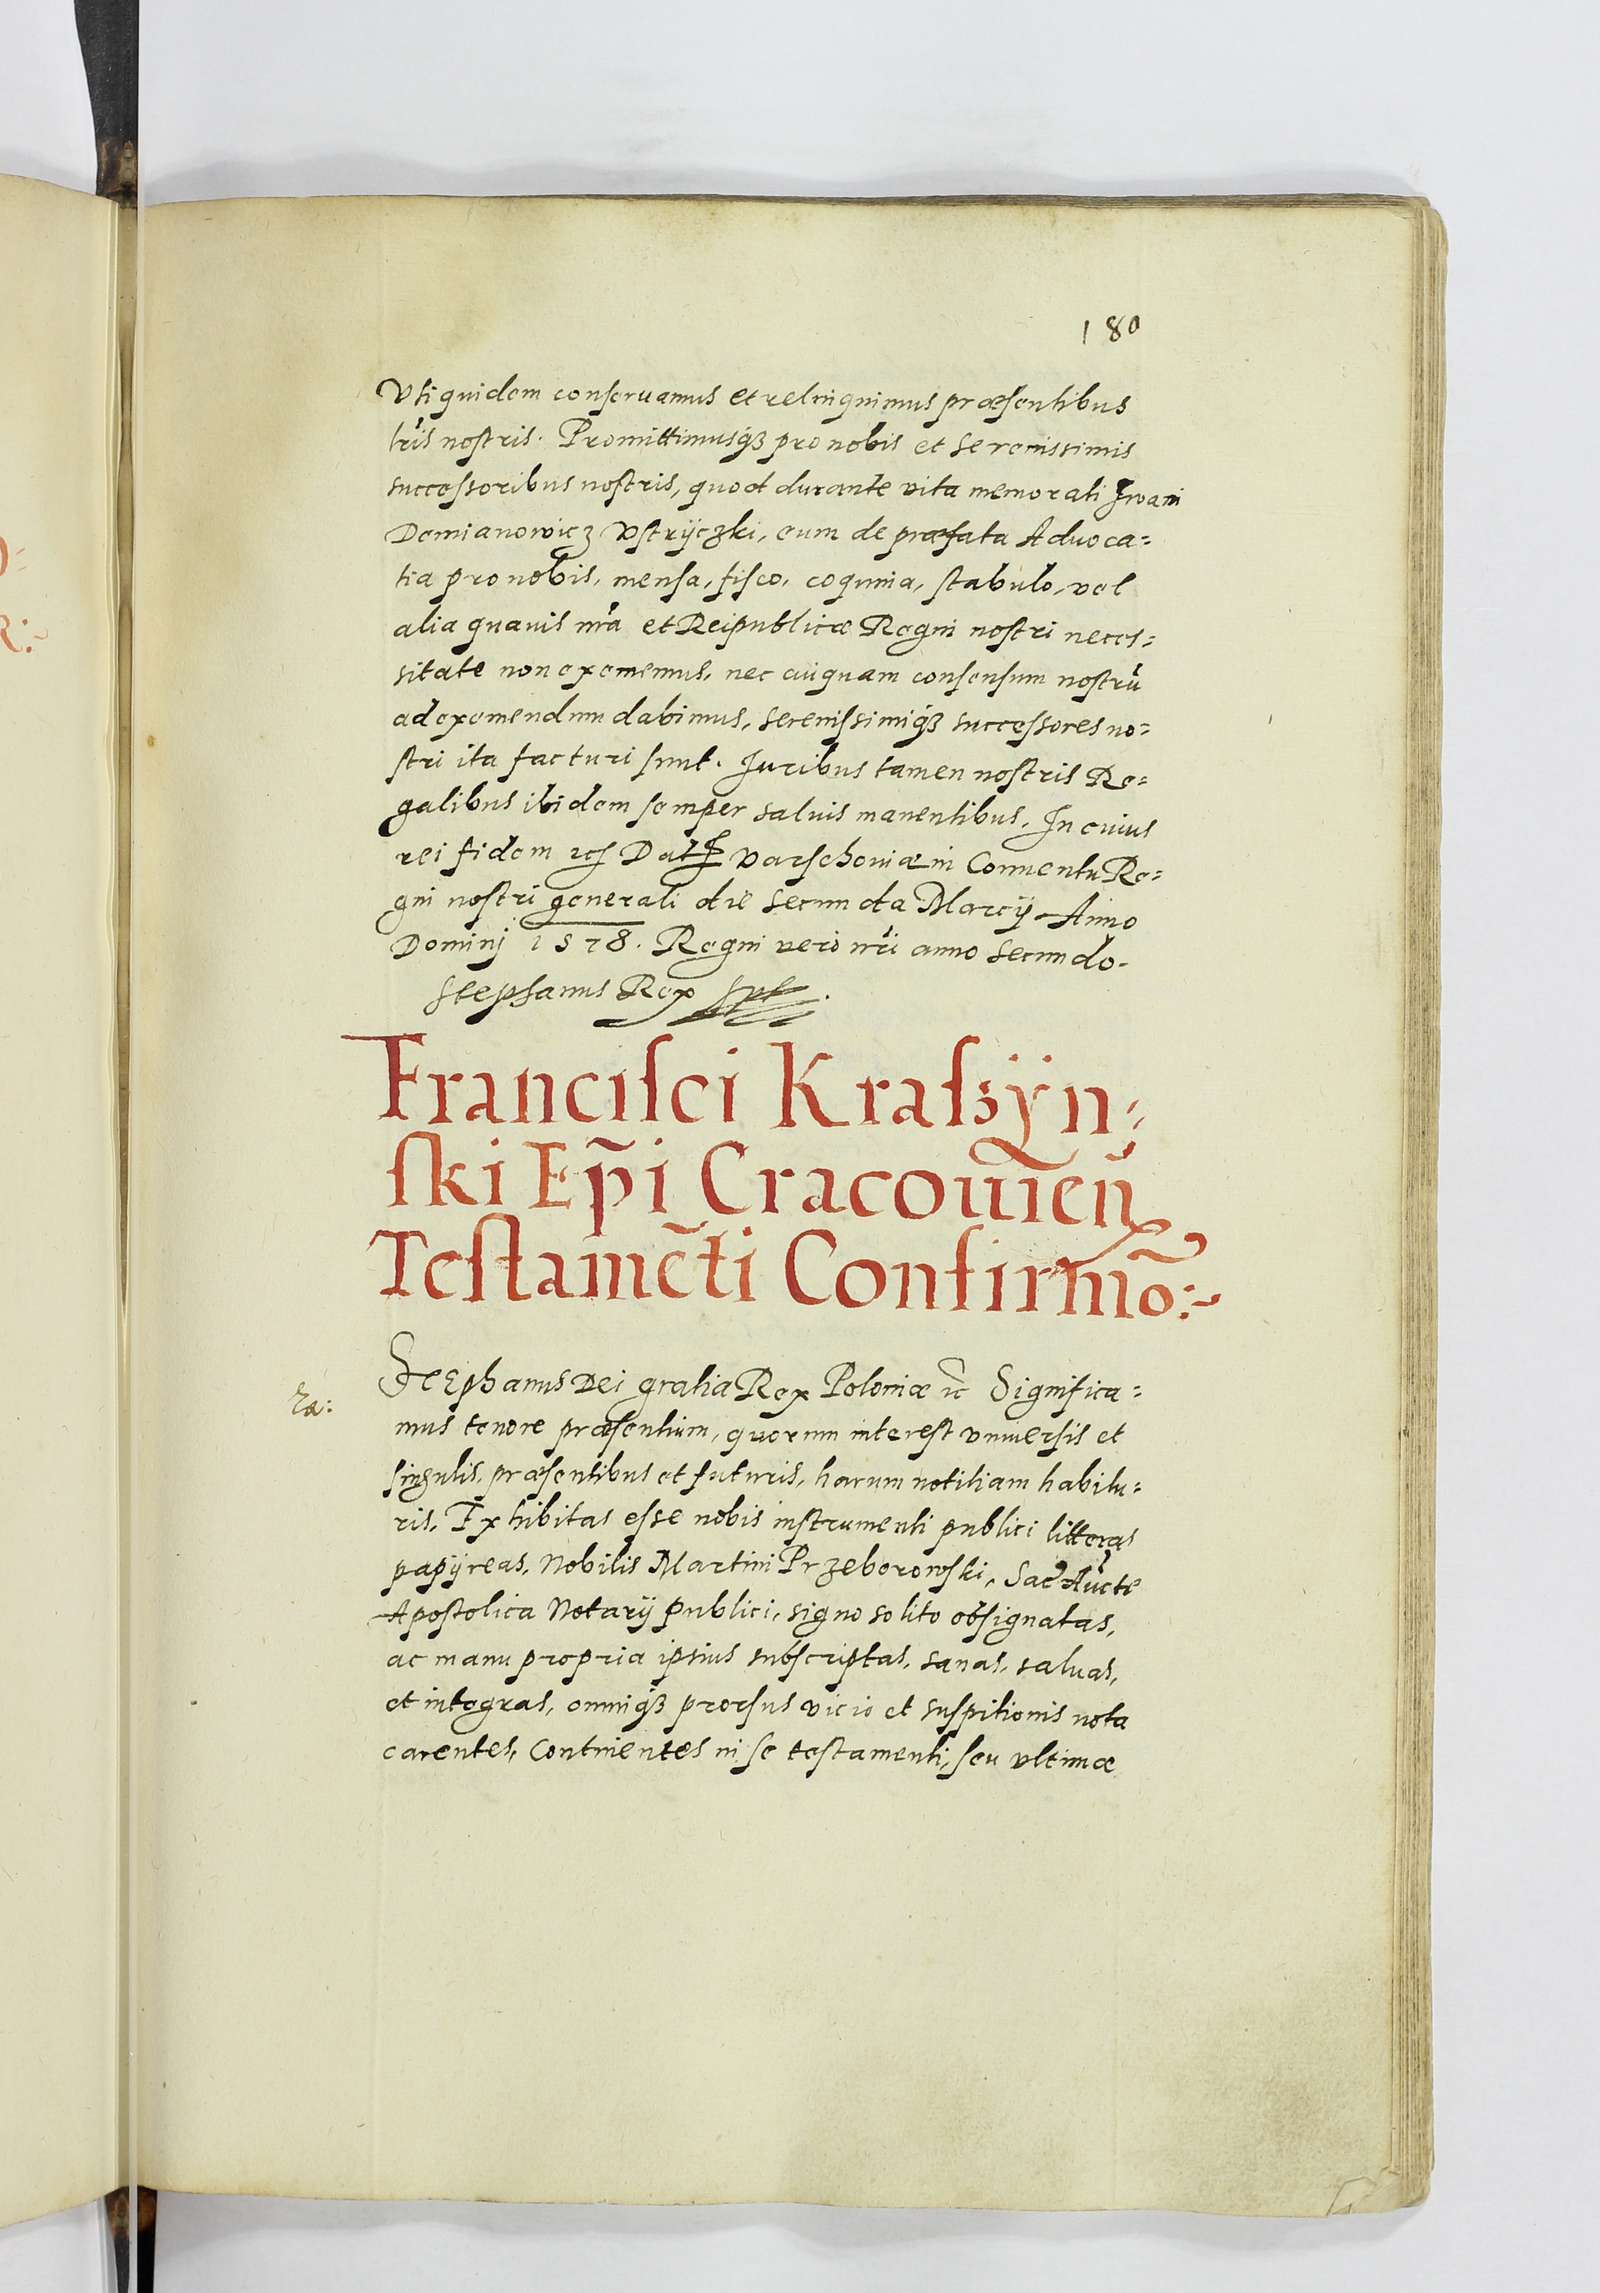 180
Vti quidem conseruamus et relinquimus præsentibus
lris nostris. Promittimusq3 pro nobis et Serenissimis
successoribus nostris, quod durante vita memorati Iwani
Demianowicz Vstrÿczki, eum de præfata Aduoca=
tia pro nobis, mensa, fisco, coquina, stabulo, vel
alia quauis nra et Reipublicæ Regni nostri neces=
sitate non exememus, nec cuiquam consensum nostrū
ad exemendum dabimus, serenissimiq3 successores no=
stri ita facturi sunt. Iuribus tamen nostris Re=
galibus ibidem semper saluis manentibus. In cuius
rei fidem Dat Varschouiæ in Conuentu Re=
gni nostri generali die Secunda Marcÿ Anno
Dominj 1578. Regni vero nri anno Secundo.
Stephanus Rex spt.
Francisci Kraszÿn=
ski Ep̃i Cracouien̄
Testamẽti Confirmõ:~
Stephanus Dei gratia Rex Poloniæ ic Significa=
mus tenore præsentium, quorum interest vniuersis et
singulis, præsentibus et futuris, harum notitiam habitu=
ris. Exhibitas esse nobis instrumenti publici litteras
papÿreas, Nobilis Martini Przeborowski, Sac Aucte
Apostolica Notarÿ publici, signo solito obsignatas,
ac manu propria ipsius subscriptas, sanas, saluas,
et integras, omniq3 prorsus vicio et suspitionis nota
carentes, Continentes in se testamenti, seu vltimæ